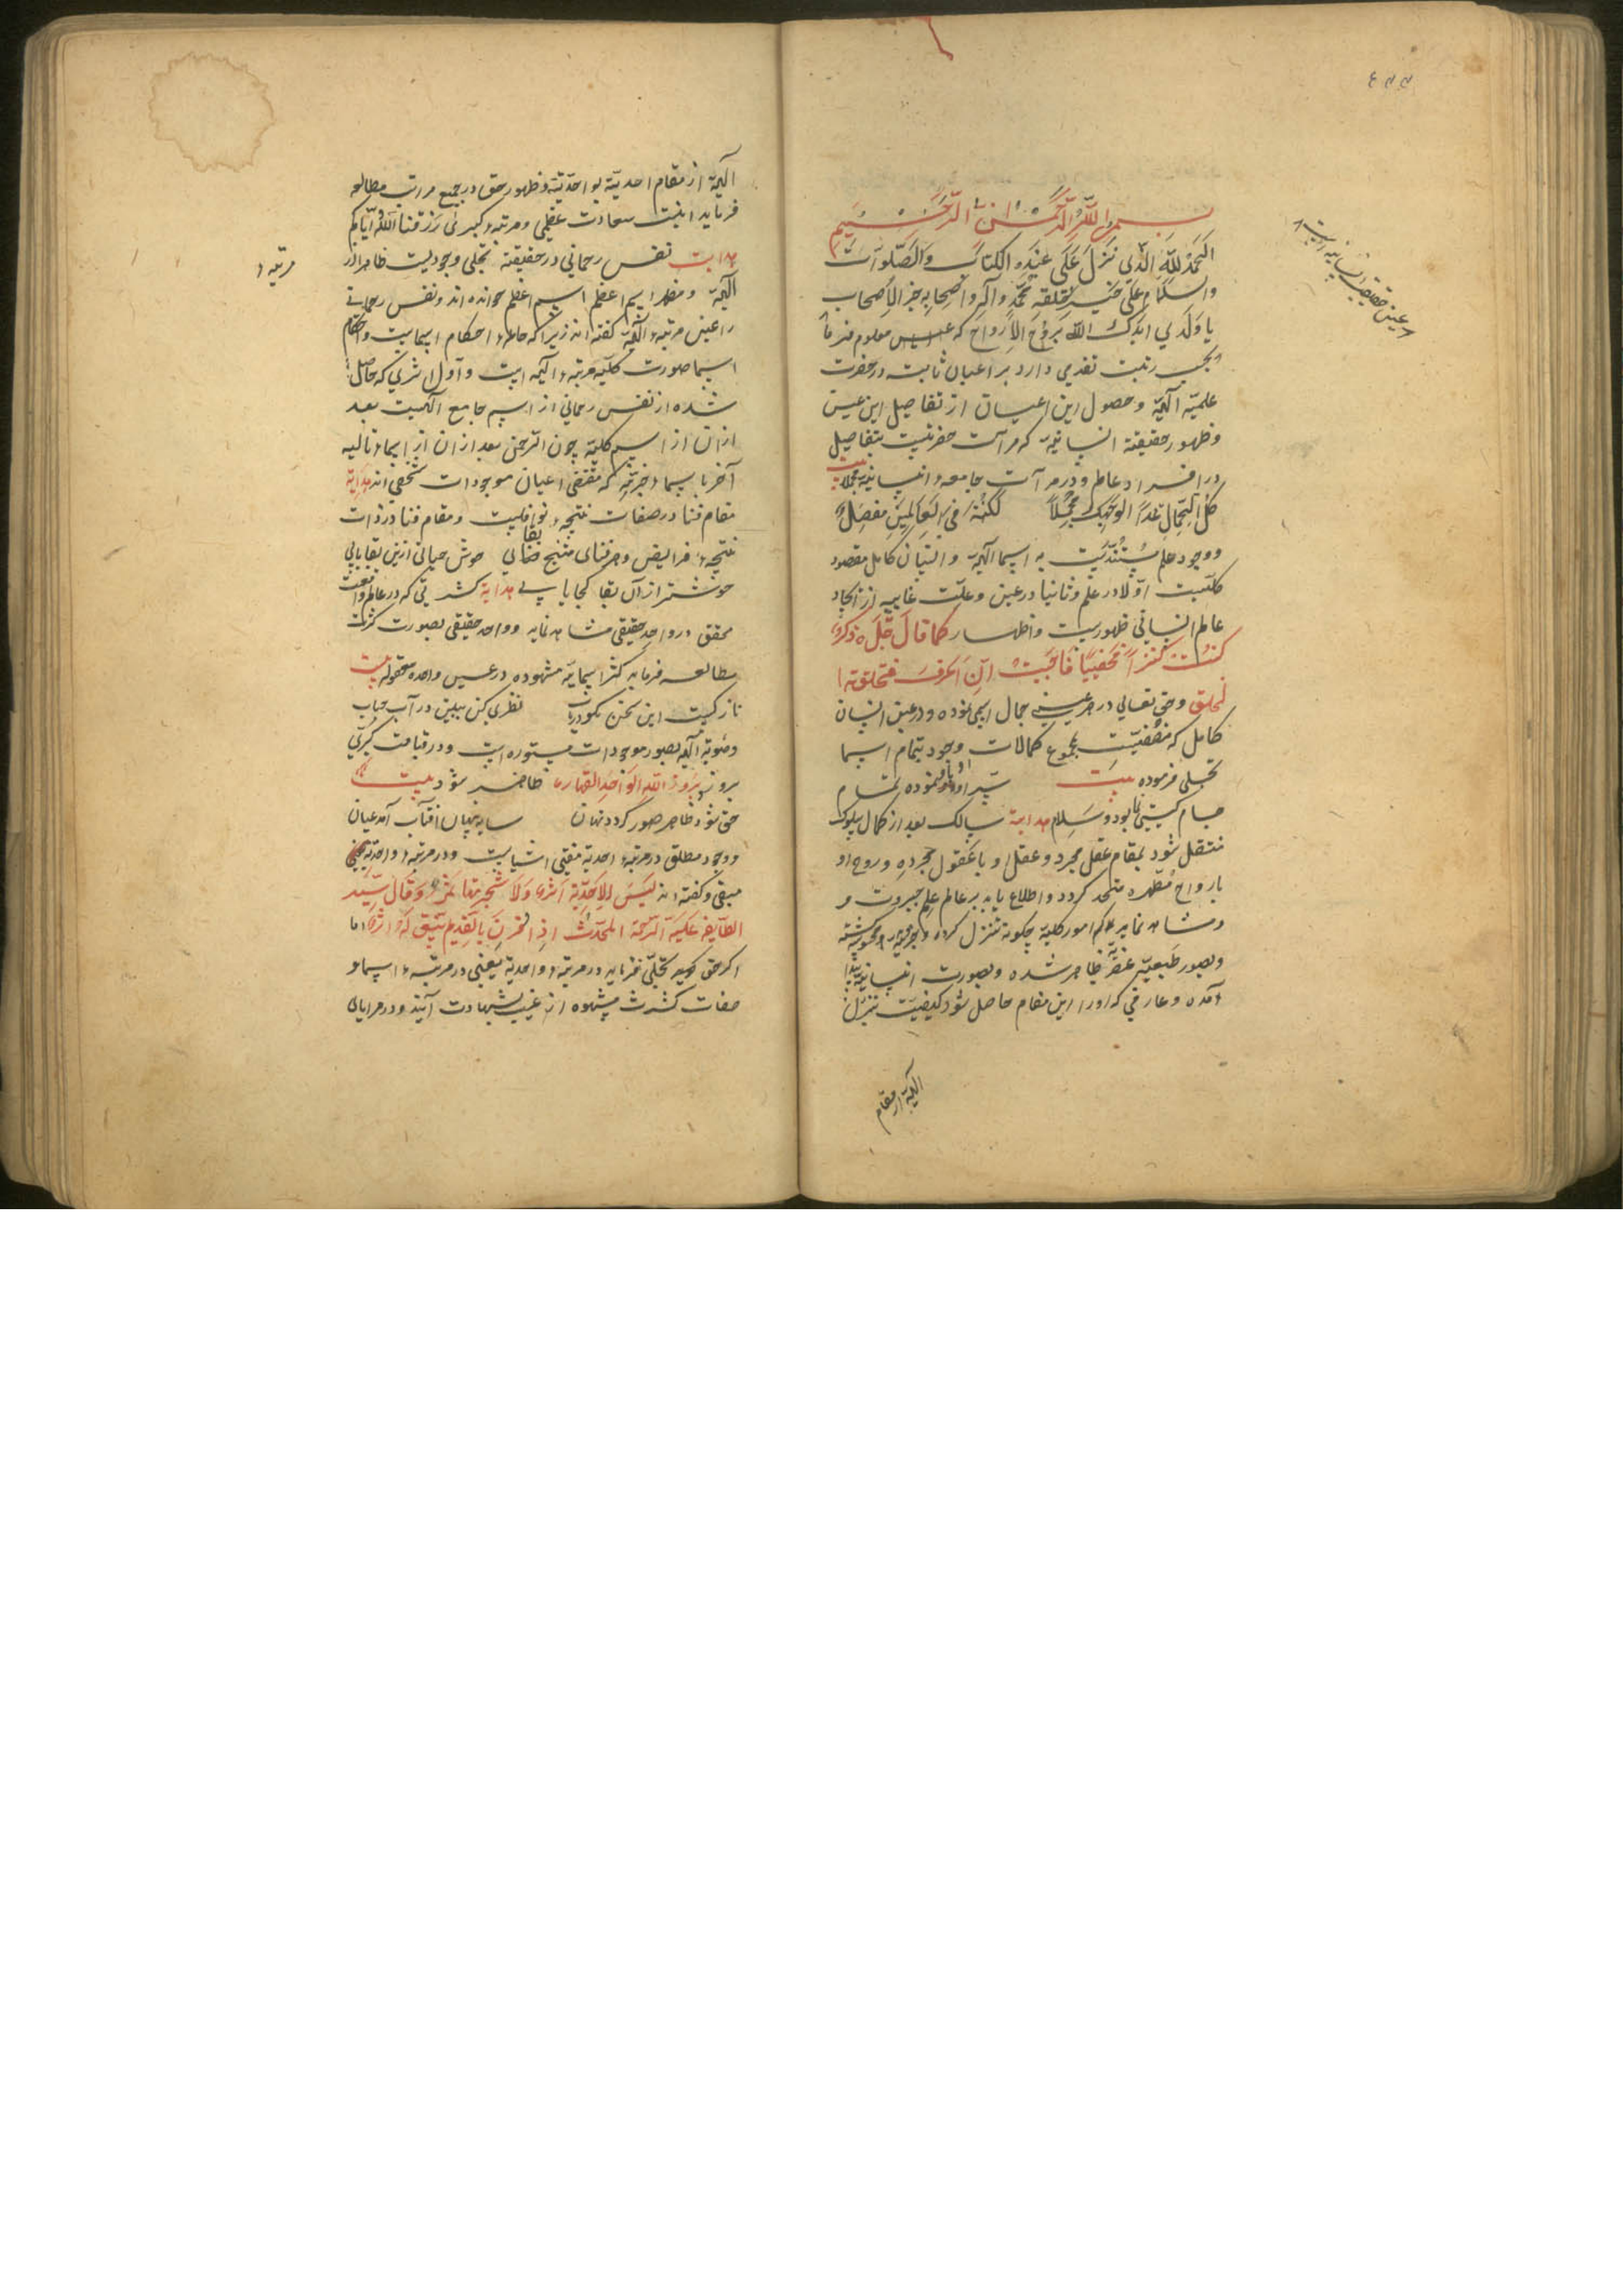 بسم الله الرحمن الرحیم
الحمد لله الذی نزل علی عبده الکتاب والصلوات
والسلام علی خیر خلقه محمد وآله واصحابه خیر الاصحاب
یا ولدی ایدک الله بروح الارواح که عین معلوم فرما
بحسب رتبت تقدمی دارد بر اعیان ثابت در حضرت
علمیه الٓهیه وحصول این اعیان از تفاصیل این عین
وظهور حقیقته انسانیه که مرآت حضرتیست بتفاصیل
در افراد عالم ودر مرآت جامعه انسانیه مجملا بیت
کل الجمال غدا لوجهک مجملا لکنه فی العالمین مفصل
ووجود عالم مستندیست به اسما الٓهیه وانسان کامل مقصود
کلیست اولا در علم وثانیا در عین وعلت غاییه از ایجاد
عالم انسانی ظهوریست واظهار کما قال جل ذکره
کنت کنزا مخفیا فاحببت ان اعرف فخلقت ا
لخلق وحق تعالی در هر عینی جمال اسمی نموده ودر عین انسان
کامل که مقتضیست بمجموع کمالات وجود بتمام اسما
تجلی فرموده بیت سر او با او نموده تمام
جام گیتی نما بود وسلام هدایة سالک بعد از کمال سلوک
منتقل شود بمقام عقل مجرد وعقل او با عقول مجرده وروح او
با ارواح مطهره متحد کردد واطلاع یابد بر عالم علم جبروت و
ومشاهده نماید که امور کلیه چکونه تنزل کرده
وبصور طبیعیه عنصریه ظاهر شده وبصورت انسانیه پیدا
آمده وعارفی که او را این مقام حاصل شود کیفیت تنزل
الٓهیه از مقام
عین حقیقت انسانیه است
الٓهیه از مقام احدیة بواحدیة وظهور حق در جمیع مراتب مطالعه
فرماید اینست سعادت عظمی ومرتبه کبری رزقنا الله وایاکم
هدایت نفس رحمانی در حقیقته تجلی وجودیست ظاهر از
مرتبه
الٓهیه ومظهر اسم اعظم اسم اعظم خوانده اند ونفس رحمانی
را عین مرتبه الٓهیه کفته اند زیرا که جامع احکام اسماست واحکام
اسما صورت کلیه مرتبه الٓهیه است واول اثری که حاصل
شده از نفس رحمانی از اسم جامع الٓهیست بعد
از ان از اسم کلیه چون الرحمن بعد از ان از اسماء تالیه
آخر باسما جزئیه که مقتضی اعیان موجودات شخصی اند هدایة
مقام فنا در صفات نتیجه نوافلیست ومقام فنا در ذات
نتیجه فرایض وهر فنای منتج بقا خوش حیاتی ازین بقا یابی
خوشتر از آن بقا کجا یابی هدایة کثرتی که در عالم واقعست
محقق در واحد حقیقی مشاهده نماید وواحد حقیقی بصورت کثرت
مطالعه فرماید کثرا سمائیه مشهوده در عین واحده معقوله بیت
نازکیست این سخن نکو دریاب نظری کن ببین در آب حباب
وهویة الٓهیه بصور موجودات مستوره است ودر قیامت کبری
بروز برزوا لله الواحد القهار ظاهر شود بیت
حق شود ظاهر صور کردد نهان سایه پنهان افتاب آمد عیان
ووجود مطلق در مرتبه احدیة مفنی اشیاست ودر مرتبه واحدیة
مبقی وکفته اند لیس للاحدیة اثر ولا شجرتها ثمر وقال سید
الطایفه علیه الرحمة المحدث اذا قرن بالقدیم لم یبق له اثر اما
اکر حق تجلی فرماید در مرتبه واحدیة یعنی در مرتبه اسما و
صفات کثرت مشهوده از غیب بشهادت آیند ودر مرایای